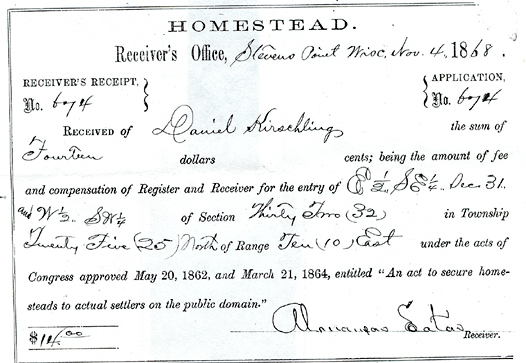 HOMESTEAD.
Receiver's Office, Stevens Point Wisc, Nov. 4, 1868.
RECEIVER'S RECEIPT, APPLICATION,
No. 6074 No. 6074
RECEIVED of Daniel Kirschling the sum of
Fourteen dollars cents; being the amount of fee
and compensation of Register and Receiver for the entry of E ½ SE ¼ Sec 31.
and W ½ SW ¼ of Section Thirty Two (32) in Township
Twenty Five (25) North of Range Ten (10) East under the acts of
Congress approved May 20, 1862, and March 21, 1864, entitled "An act to secure home-
steads to actual settlers on the public domain."
$14.00 Receiver.